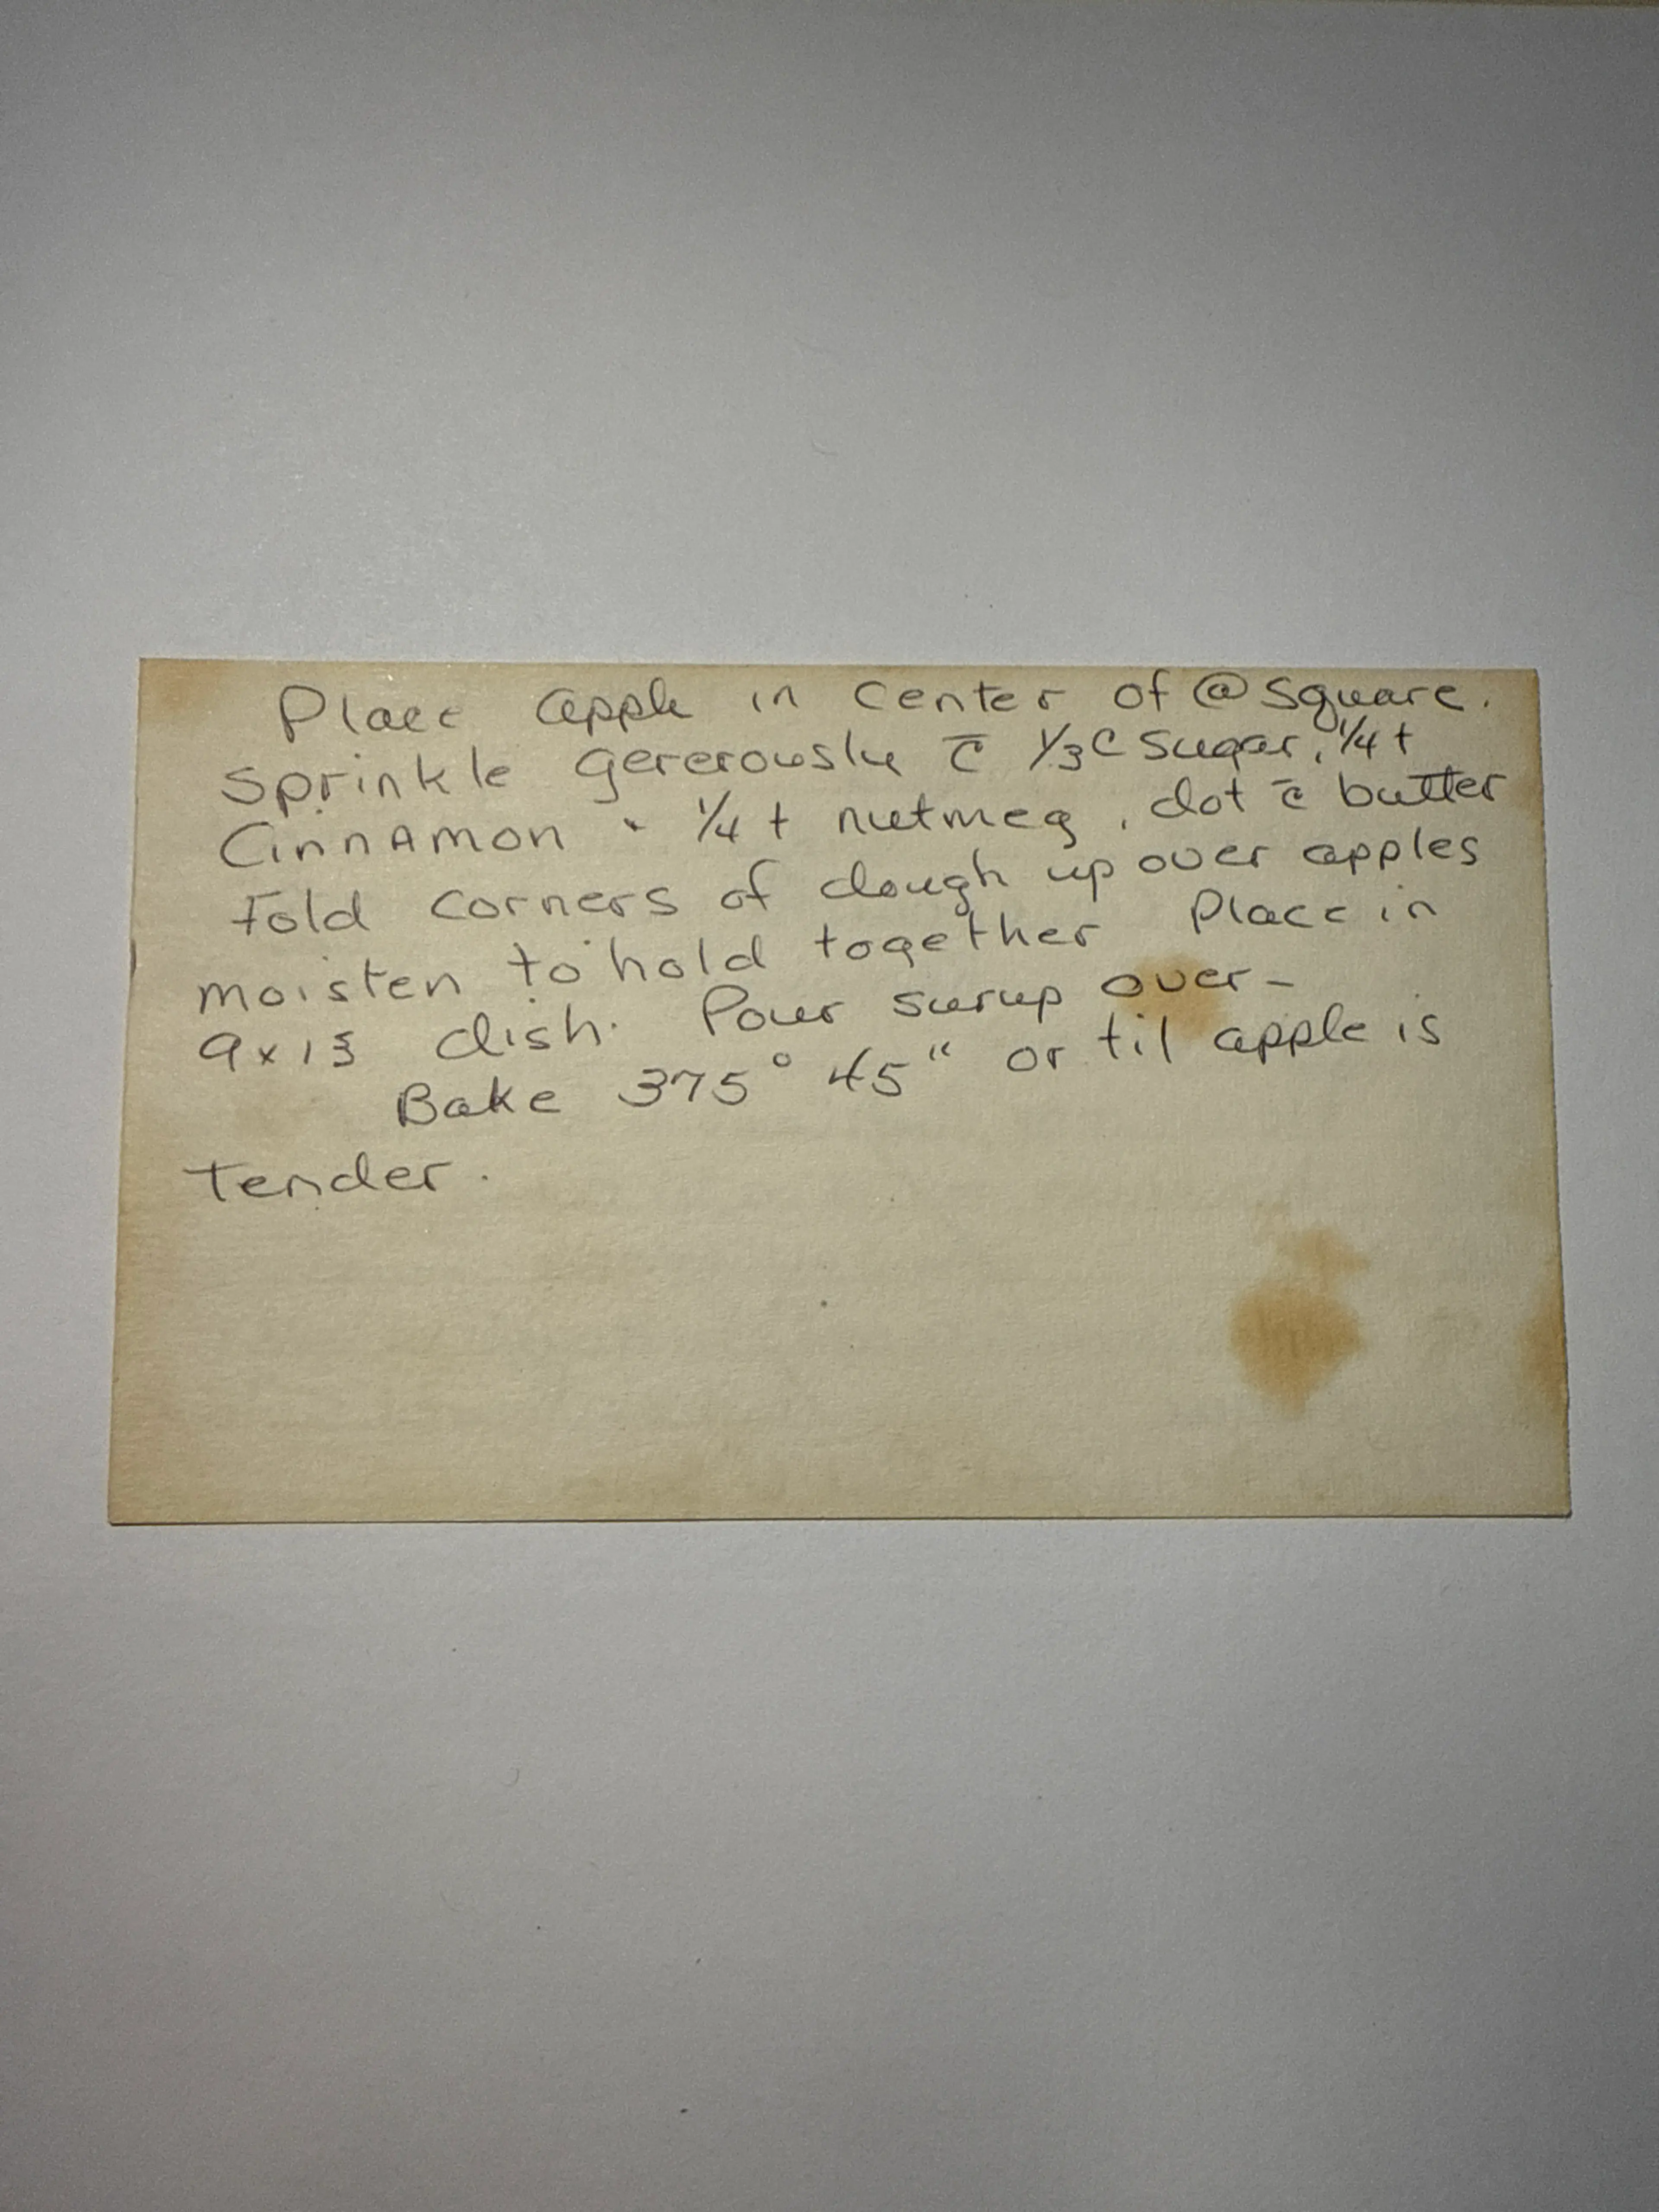 Place apple in center of @ square.
Sprinkle generously c̄ 1/3 c sugar, 1/4 t
Cinnamon + 1/4 t nutmeg, dot c̄ butter
Fold corners of dough up over apples
moisten to hold together Place in
9x13 dish. Pour surup over-
Bake 375° 45" or til apple is
tender.